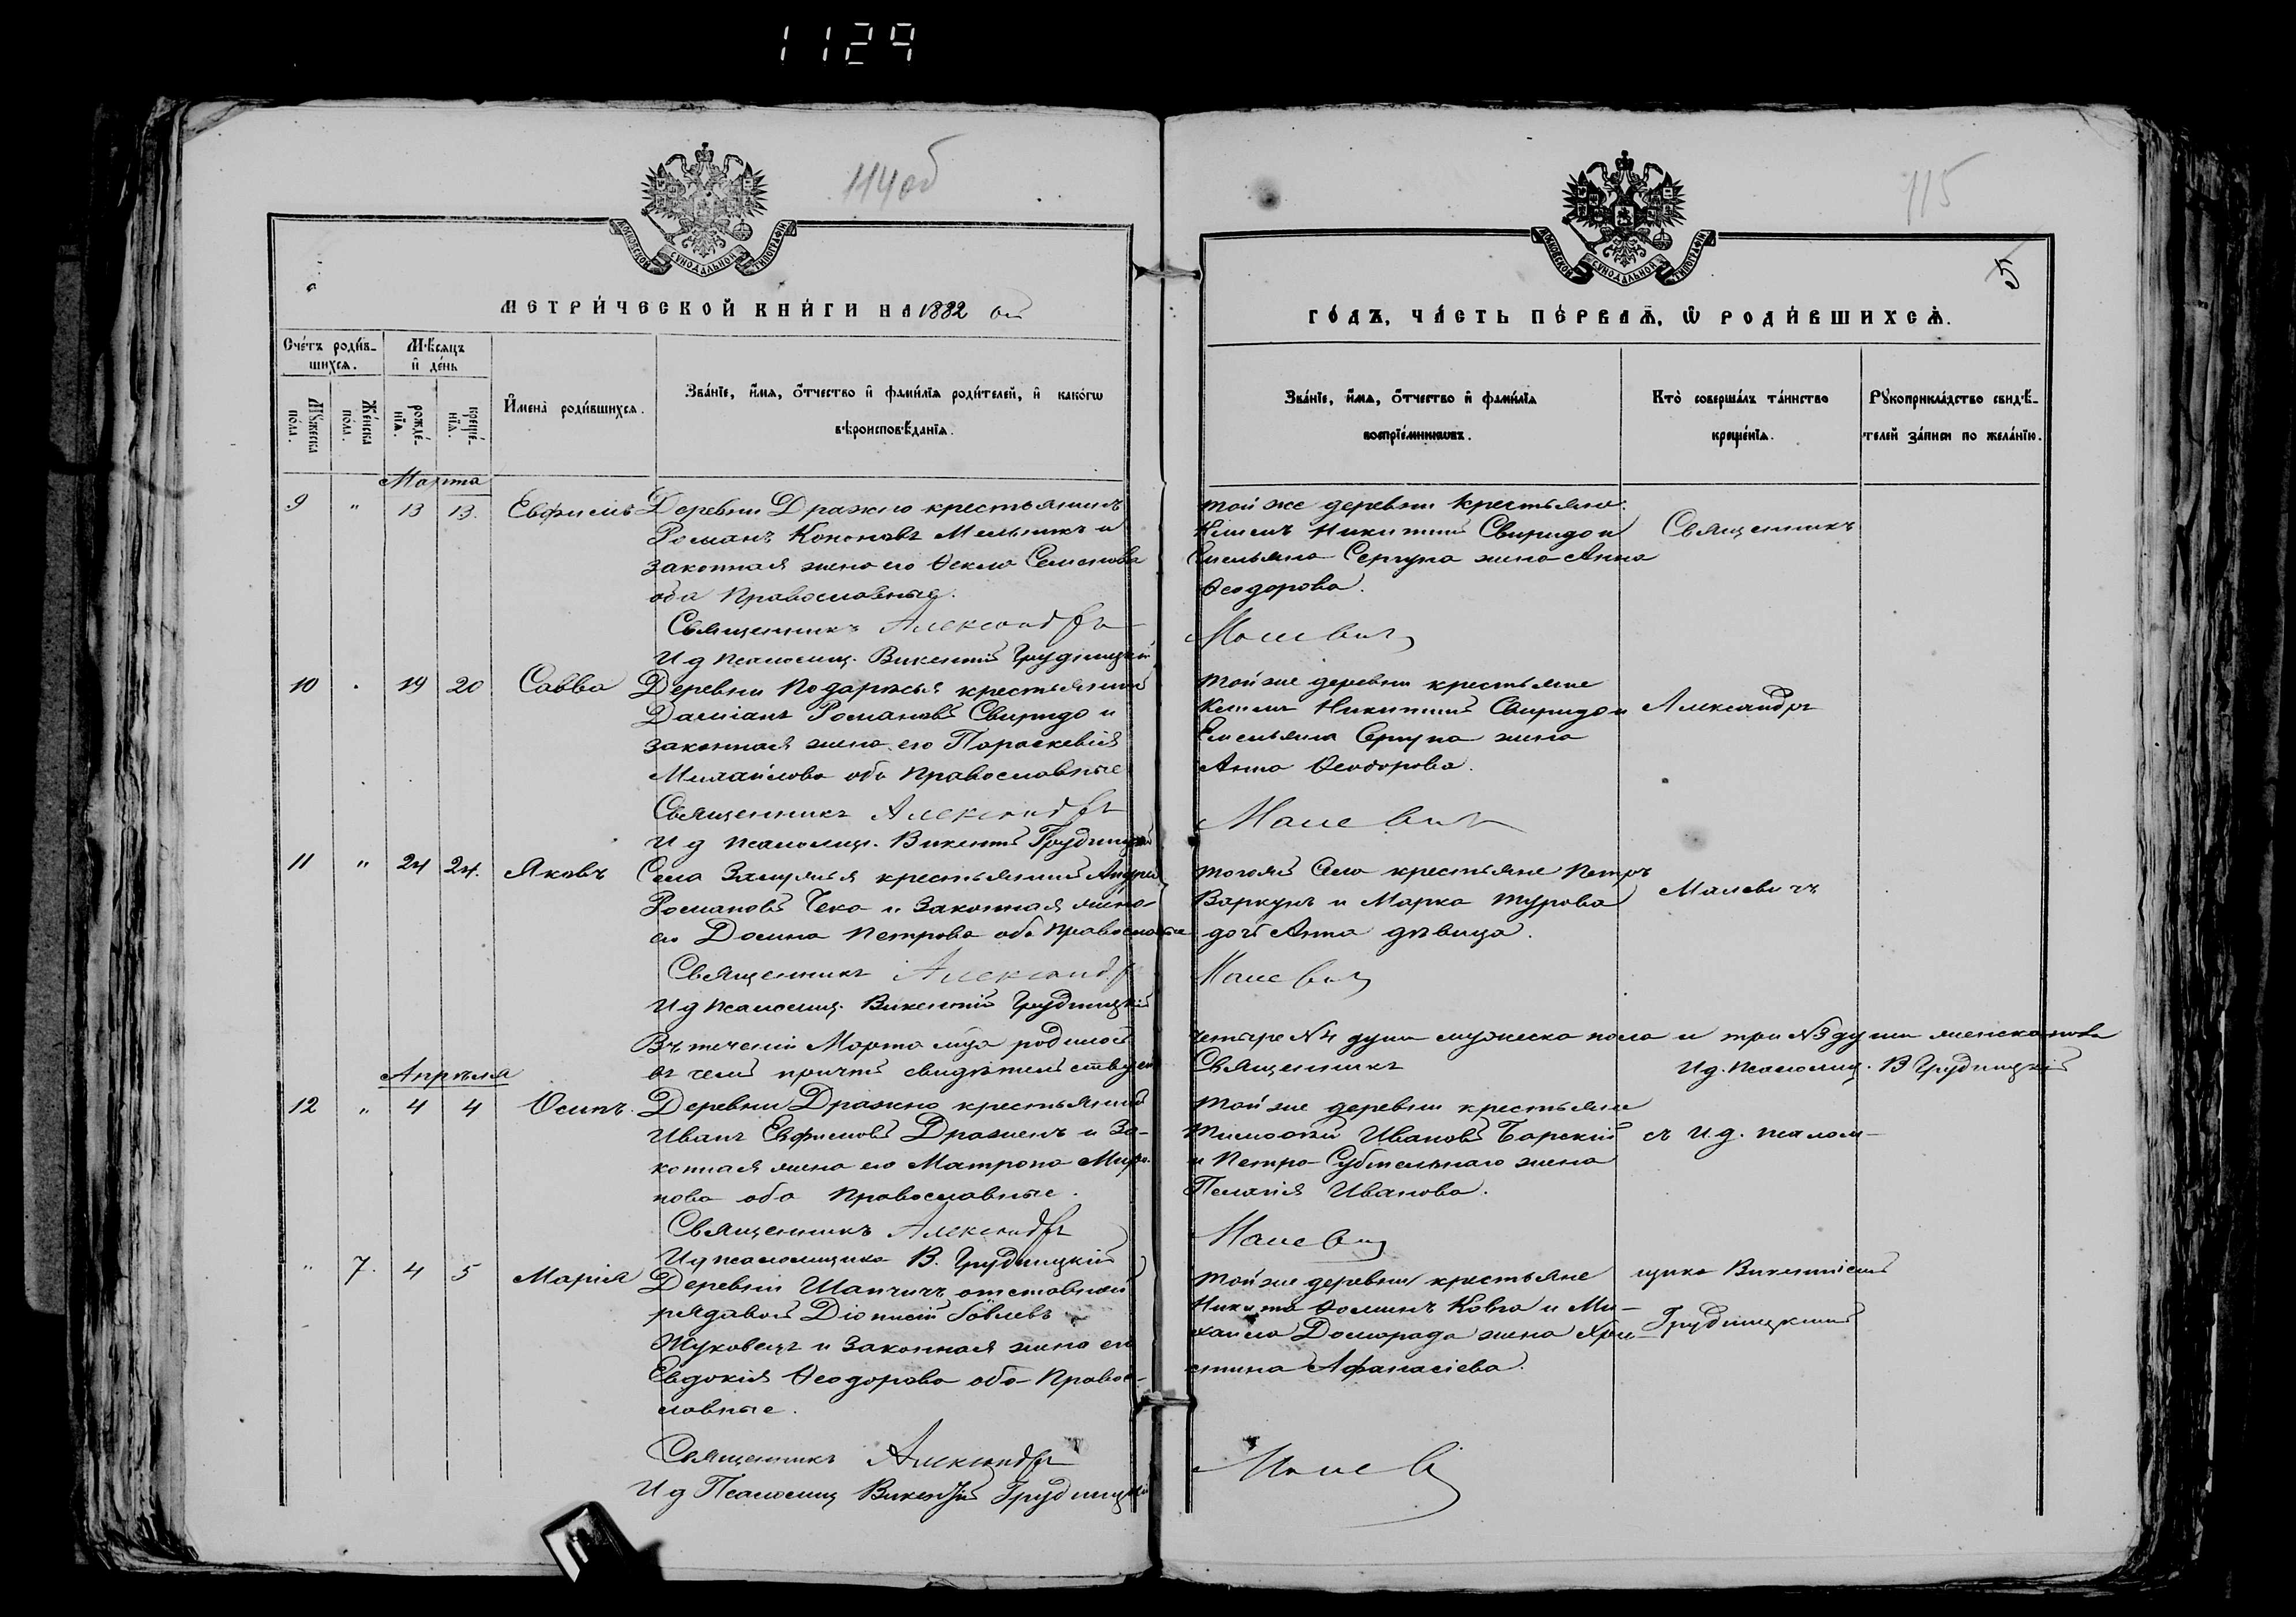 1129
114об
МОСКОВСКОЙ СУНОДАЛЬНОЙ ТИПОГРАФІИ
МЕТРИ́ЧЕСКОЙ КНИ́ГИ НА 1882 ой
Сче́тъ роди́в-
шихся.
Мѣсяцъ
и҆ де́нь
Му́жеска
по́ла.
Же́нска
по́ла.
рожде́-
нїѧ.
креще́-
нїѧ.
И҆мена̀ роди́вшихся.
Зва́нїе, и҆́мя, ѻ҆́тчество и҆ фами́лїя роди́телей, и҆ како́гѡ
вѣроисповѣ́данїя.
Марта
9 " 13 13. Евфимъ Деревни Дражно крестьянинъ
Романъ Кононовъ Мельникъ и
законная жена его Ѳекла Семенова
оба Православные.
Священникъ Александръ
И д псаломщ. Викентій Грудницкій
10 . 19 20 Савва Деревни Подаржья крестьянинъ
Даміанъ Романовъ Свиридо и
законная жена его Параскевія
Михайлова оба Православные
Священникъ Александръ
И д псаломщ. Викентій Грудницкій
11 " 24 24. Яковъ Села крестьянинъ Андрей
Романовъ Чеко и Законная жена
его Домна Петрова оба Православные
Священникъ Александръ
И д псаломщ. Викентій Грудницкій
Въ теченіи Марта м҃ца родилось
въ чемъ причтъ свидѣтельствуетъ
Апрѣля
12 " 4 4 Осипъ. Деревни Дражно крестьянинъ
Иванъ Евфимовъ Драженъ и За-
конная жена его Матрона Миро-
нова оба Православные.
Священникъ Александръ
И д псаломщика В. Грудницкій
" 7. 4 5 Марія Деревни отставной
рядавой Діонисій
Жуковецъ и Законная жена его
Евдокія Ѳеодорова оба Правос-
лавные.
Священникъ Александръ
И д Псаломщ Викентій Грудницкій
115
5
МОСКОВСКОЙ СУНОДАЛЬНОЙ ТИПОГРАФІИ
ГО́ДЪ, ЧА́СТЬ ПЕ́РВАѦ, Ѡ҆ РОДИ́ВШИХСѦ.
Зва́нїе, и҆́мя, ѻ҆́тчество и҆ фами́лїя
воспрїе́мниковъ.
Кто̀ соверша́лъ та́инство
креще́нїя.
Рꙋкоприкла́дство свидѣ́-
телей за́писи по жела́нїю.
Той же деревни крестьяне:
Климъ Никитинъ Свиридо и
Емельяна Сергуна жена Анна
Ѳеодорова.
Священникъ
Малевичъ
Той же деревни крестьяне
Климъ Никитинъ Свиридо и
Емельяна Сергуна жена
Анна Ѳеодорова.
Александръ
Малевичъ
Тогожъ Села крестьяне Петръ
Варкунъ и Марка Турова
дочь Анна дѣвица.
Малевичъ
Малевичъ
четыре № 4 души мужеска пола и три № 3 души женска пола
Священникъ И д. псаломщ. В Грудницкій
Той же деревни крестьяне
Тимоѳей Ивановъ Барскій
и Петра жена
Пелагія Иванова.
съ и. д. псалом-
Малевичъ
Той же деревни крестьяне
Никита Ѳоминъ Ковга и Ми-
хаила Домарада жена Хри-
стина Афанасіева.
щика Викентіемъ
Грудницкимъ
Малевичъ